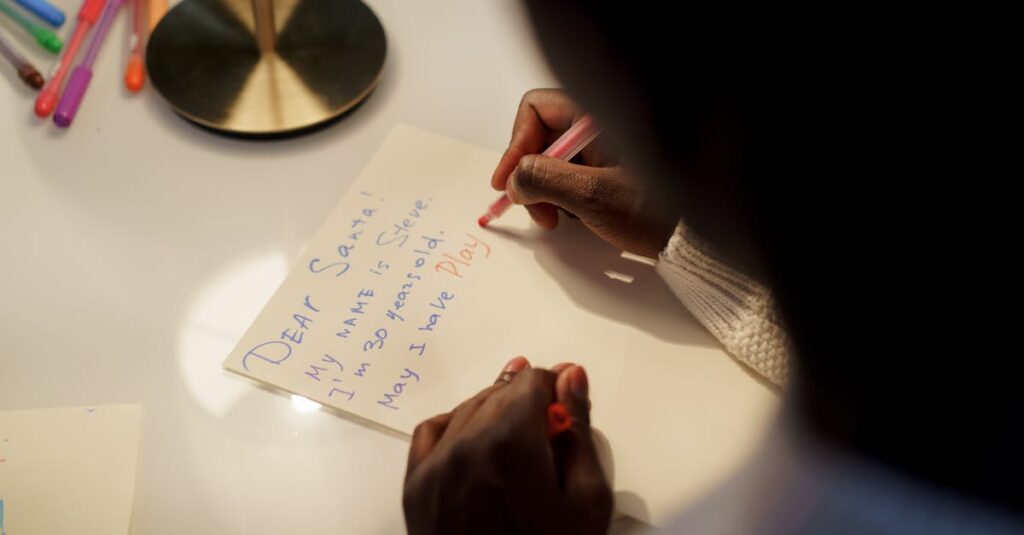 DEAR Santa!
My NAME is Steve.
I'm 30 years old.
May I have Play